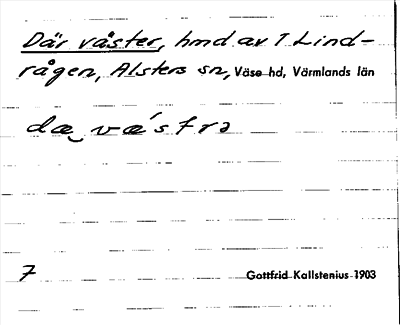 Där väster, hmd av T Lind-
rågen, Alsters sn, Väse hd, Värmlands län
dæ vǽstrə
7 Gottfrid Kallstenius 1903